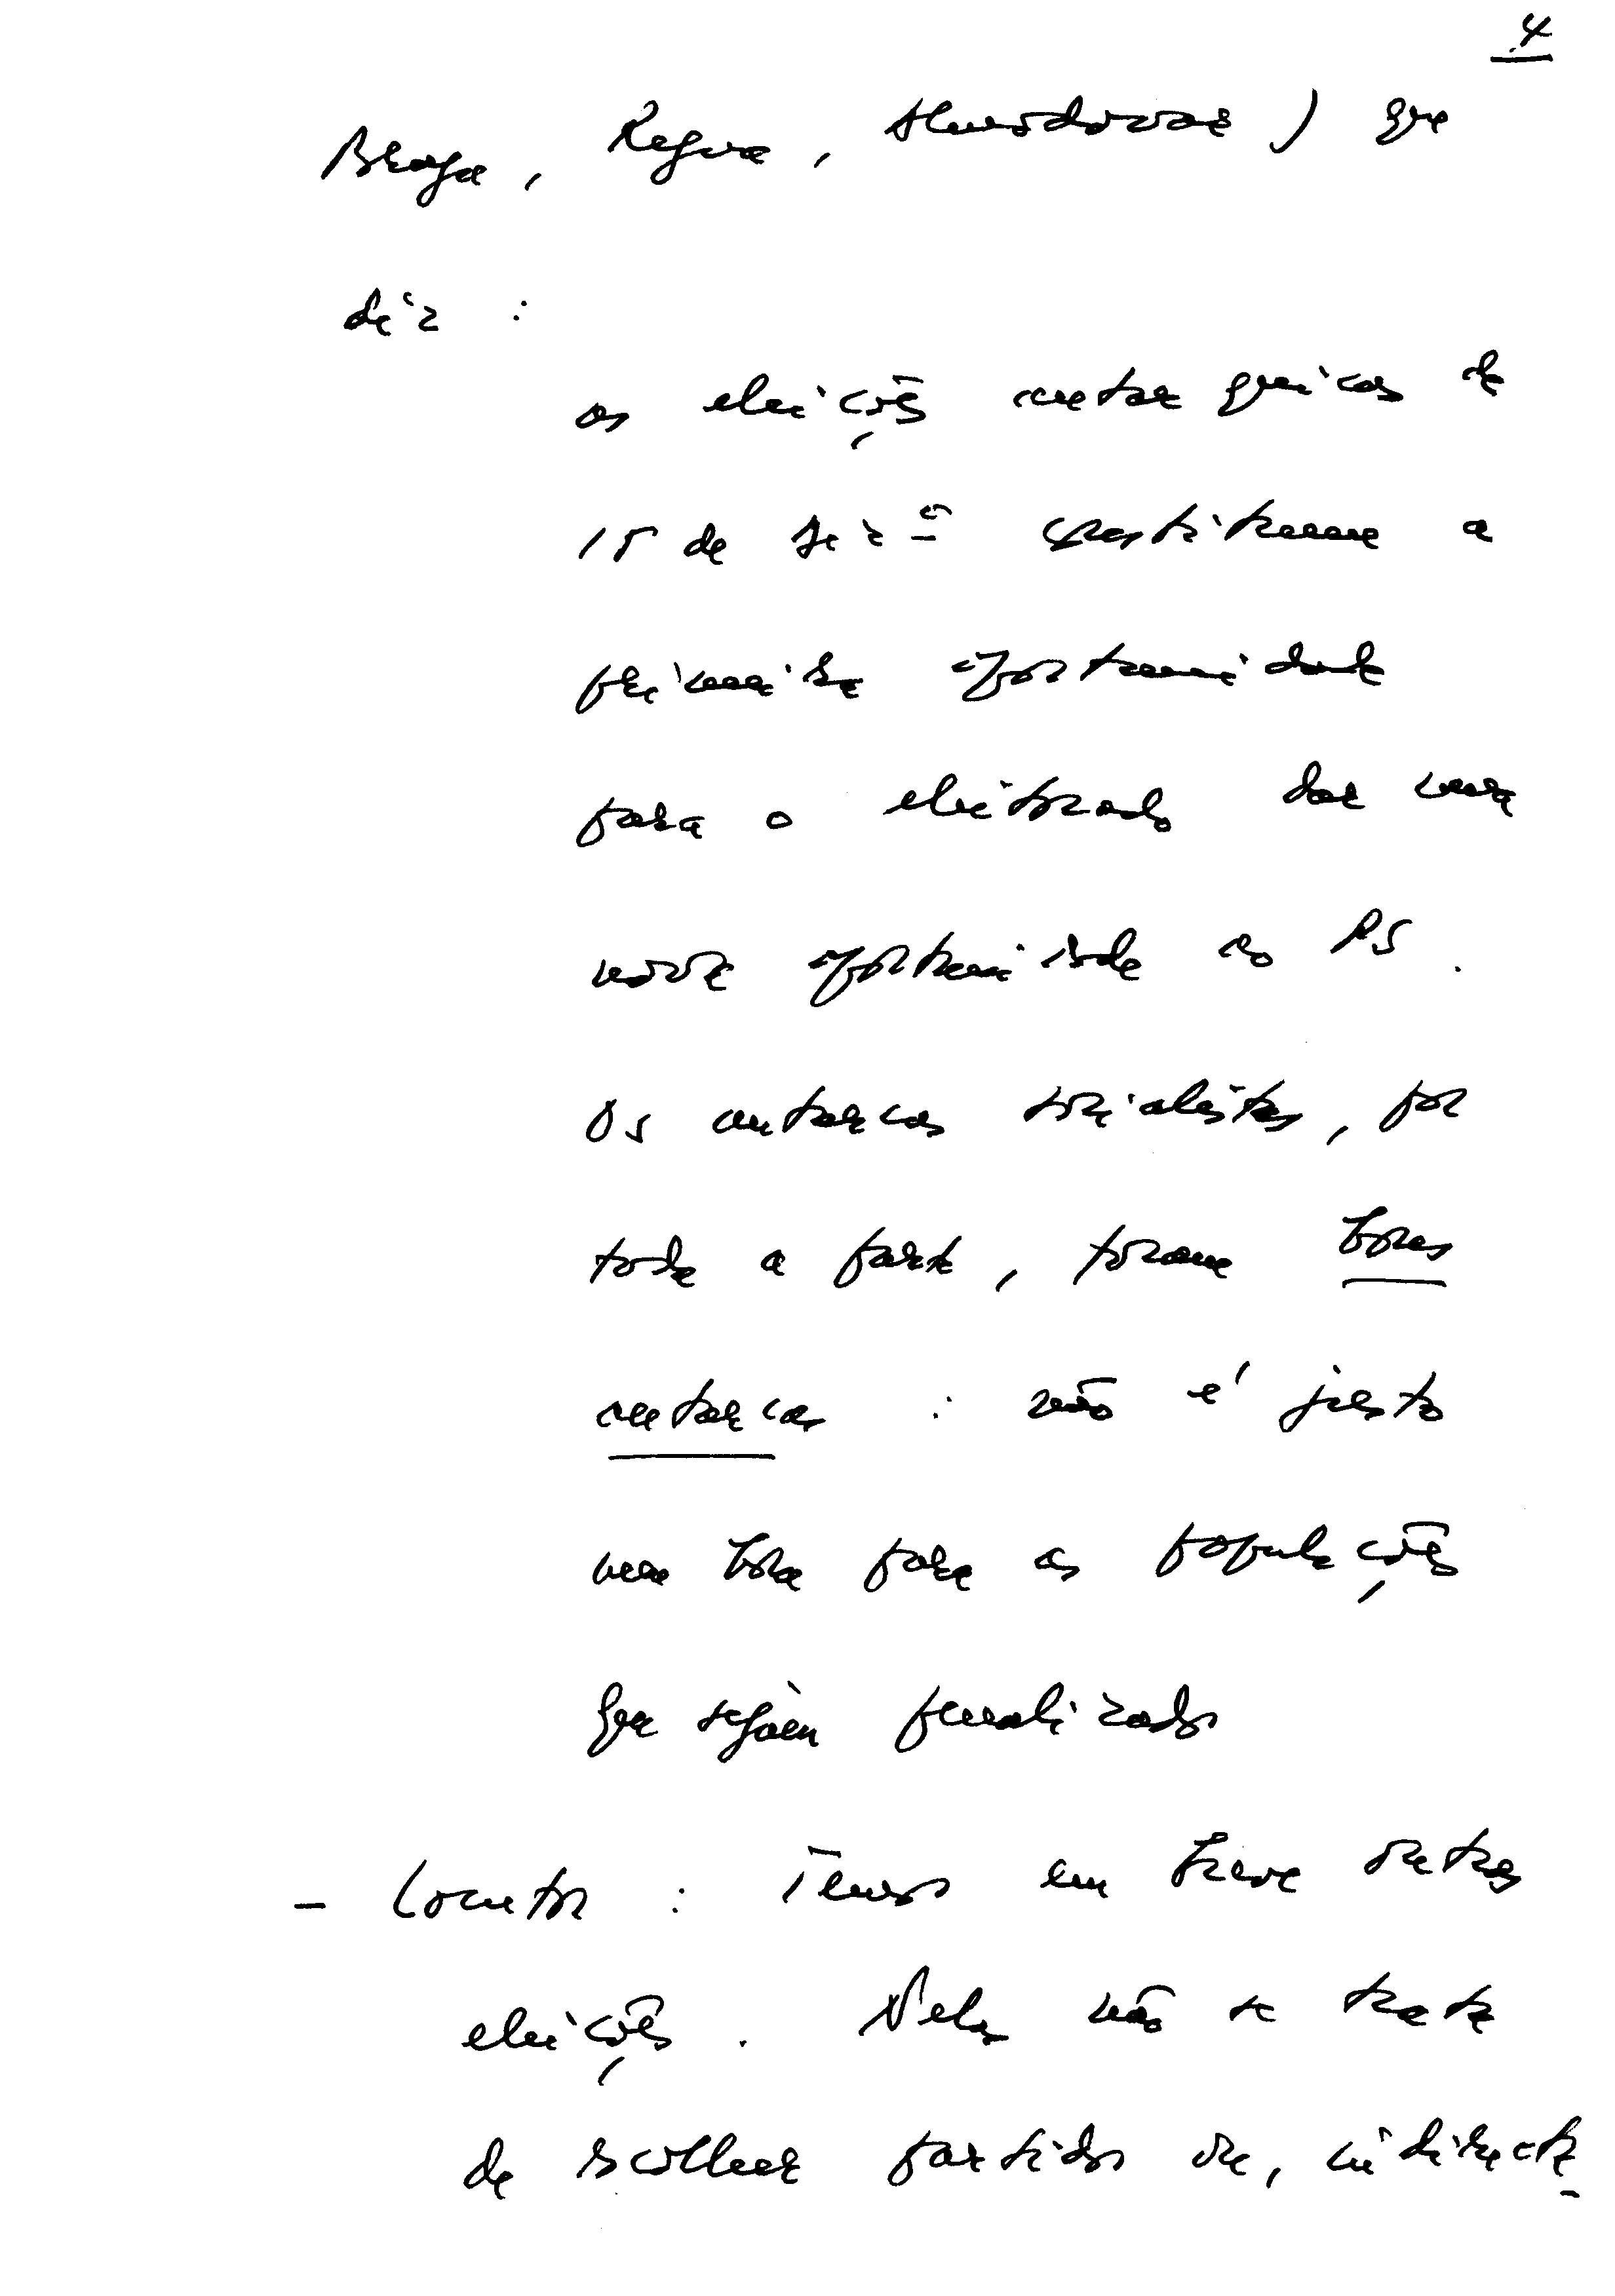 4
Braga, Regua, Almodovar) que
diz:
as eleições autarquicas de
15 de Dezº constituem a
primeira oportunidade
para o eleitorado dar uma
nova oportunidade ao PS.
Os autarcas socialistas, por
toda a parte, foram bons
autarcas: não é justo
nem bom para as populações
que sejam penalizados
- Locutor: Temos em breve outras
eleições. Nelas não se trata
de escolher partidos ou, indirecta